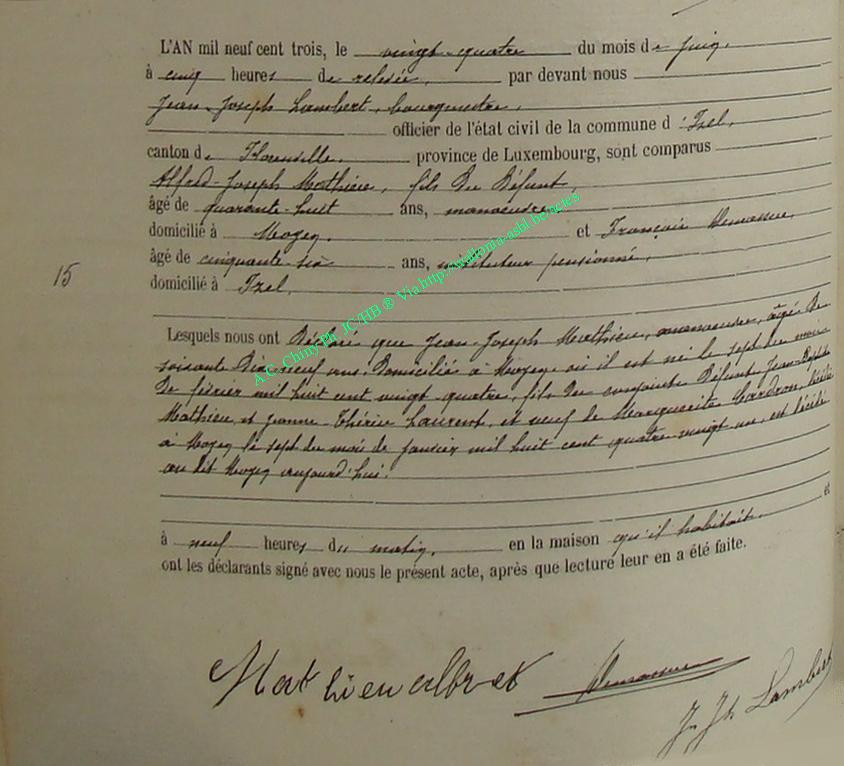 L'AN mil neuf cent trois, le vingt-quatre du mois de juin,
à cinq heures de relevée, par devant nous
Jean-Joseph Lambert, bourgmestre,
officier de l'état civil de la commune d'Izel,
canton de Florenville, province de Luxembourg, sont comparus
Alfred-Joseph Mathieu, fils du défunt,
âgé de quarante-huit ans, manoeuvre
domicilié à Moyen, et François
âgé de cinquante six ans, instituteur pensionné,
domicilié à Izel,
15
Lesquels nous ont déclaré que Jean-Joseph Mathieu, manoeuvre, âgé de
soixante dix-neuf ans, domicilié à Moyen, où il est né le sept du mois
de février mil huit cent vingt-quatre, fils des conjoints défunts Jean-Baptiste
Mathieu et Jeanne Thérèse Laurent, et veuf de Marguerite Cardron, décédée
à Moyen le sept du mois de janvier mil huit cent quatre-vingt un, est décédé
au dit Moyen aujourd'hui.
et
à neuf heures du matin, en la maison qu'il habitait.
ont les déclarants signé avec nous le présent acte, après que lecture leur en a été faite.
Mathieu J. Jh Lambert
A.C. Chiny Ph JC/HB ® Via http://wallonia-asbl.be/actes